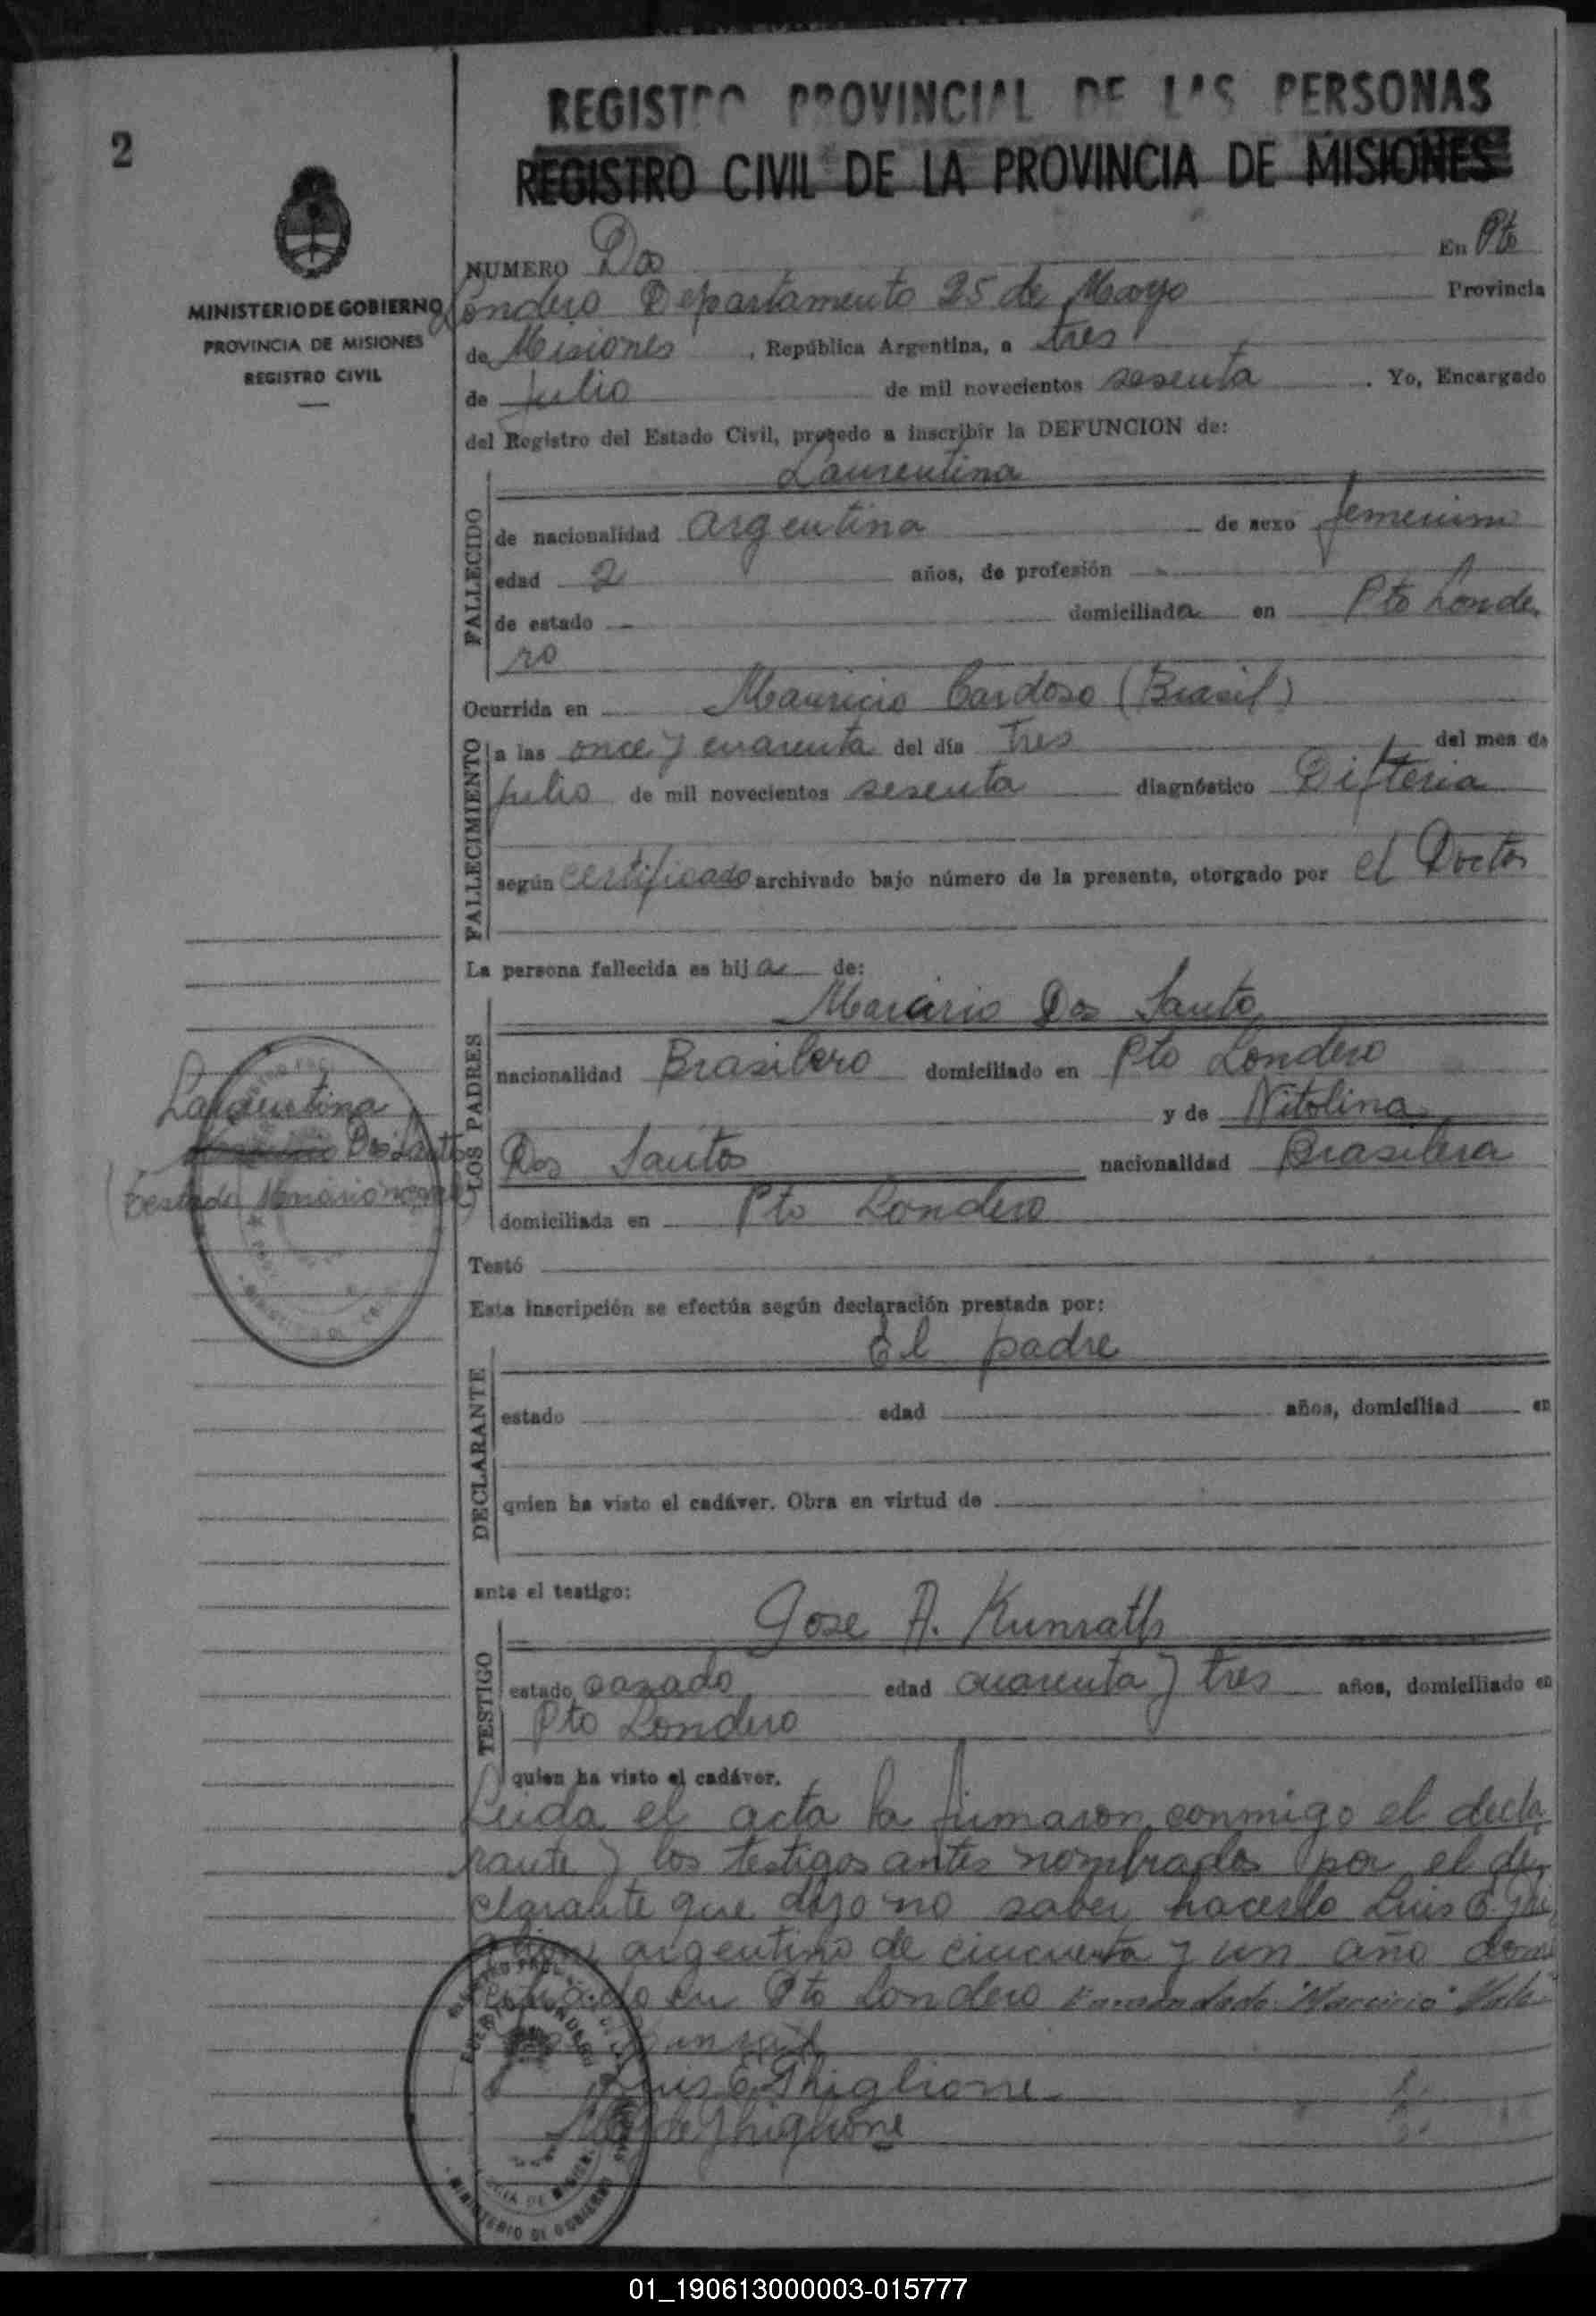 2
REGISTRO PROVINCIAL DE LAS PERSONAS
REGISTRO CIVIL DE LA PROVINCIA DE MISIONES
MINISTERIO DE GOBIERNO
PROVINCIA DE MISIONES
REGISTRO CIVIL
NUMERO Dos En Pto
Londero Departamento 25 de Mayo Provincia
de Misiones, República Argentina, a tres
de Julio de mil novecientos sesenta. Yo, Encargado
del Registro del Estado Civil, procedo a inscribir la DEFUNCION de:
FALLECIDO
Laurentina
de nacionalidad argentina de sexo femenino
edad 2 años, de profesión -
de estado - domiciliada en Pto Londe
ro
Ocurrida en Mauricio Cardoso (Brasil)
FALLECIMIENTO
a las once y cuarenta del día tres del mes de
Julio de mil novecientos sesenta diagnóstico Difteria
según certificado archivado bajo número de la presente, otorgado por el Doctor
La persona fallecida es hija de:
LOS PADRES
Macario Dos Santo
nacionalidad Brasilero domiciliado en Pto Londero
y de Nitolina
Dos Santos nacionalidad Brasilera
domiciliada en Pto Londero
Laurentina
Dos Santos
Testó
Esta inscripción se efectúa según declaración prestada por:
DECLARANTE
El padre
estado edad años, domiciliad en
quien ha visto el cadáver. Obra en virtud de
ante el testigo:
TESTIGO
Jose A. Kunrath
estado casado edad cuarenta y tres años, domiciliado en
Pto Londero
quien ha visto el cadáver.
Leida el acta la firmaron conmigo el decla
rante y los testigos antes nombrados por el de
clarante que dijo no saber hacerlo Luis E. Ghi
glione argentino de cincuenta y un año domi
ciliado en Pto Londero
Luis E Ghiglione
de Ghiglione
MINISTERIO DE GOBIERNO
01_190613000003-015777